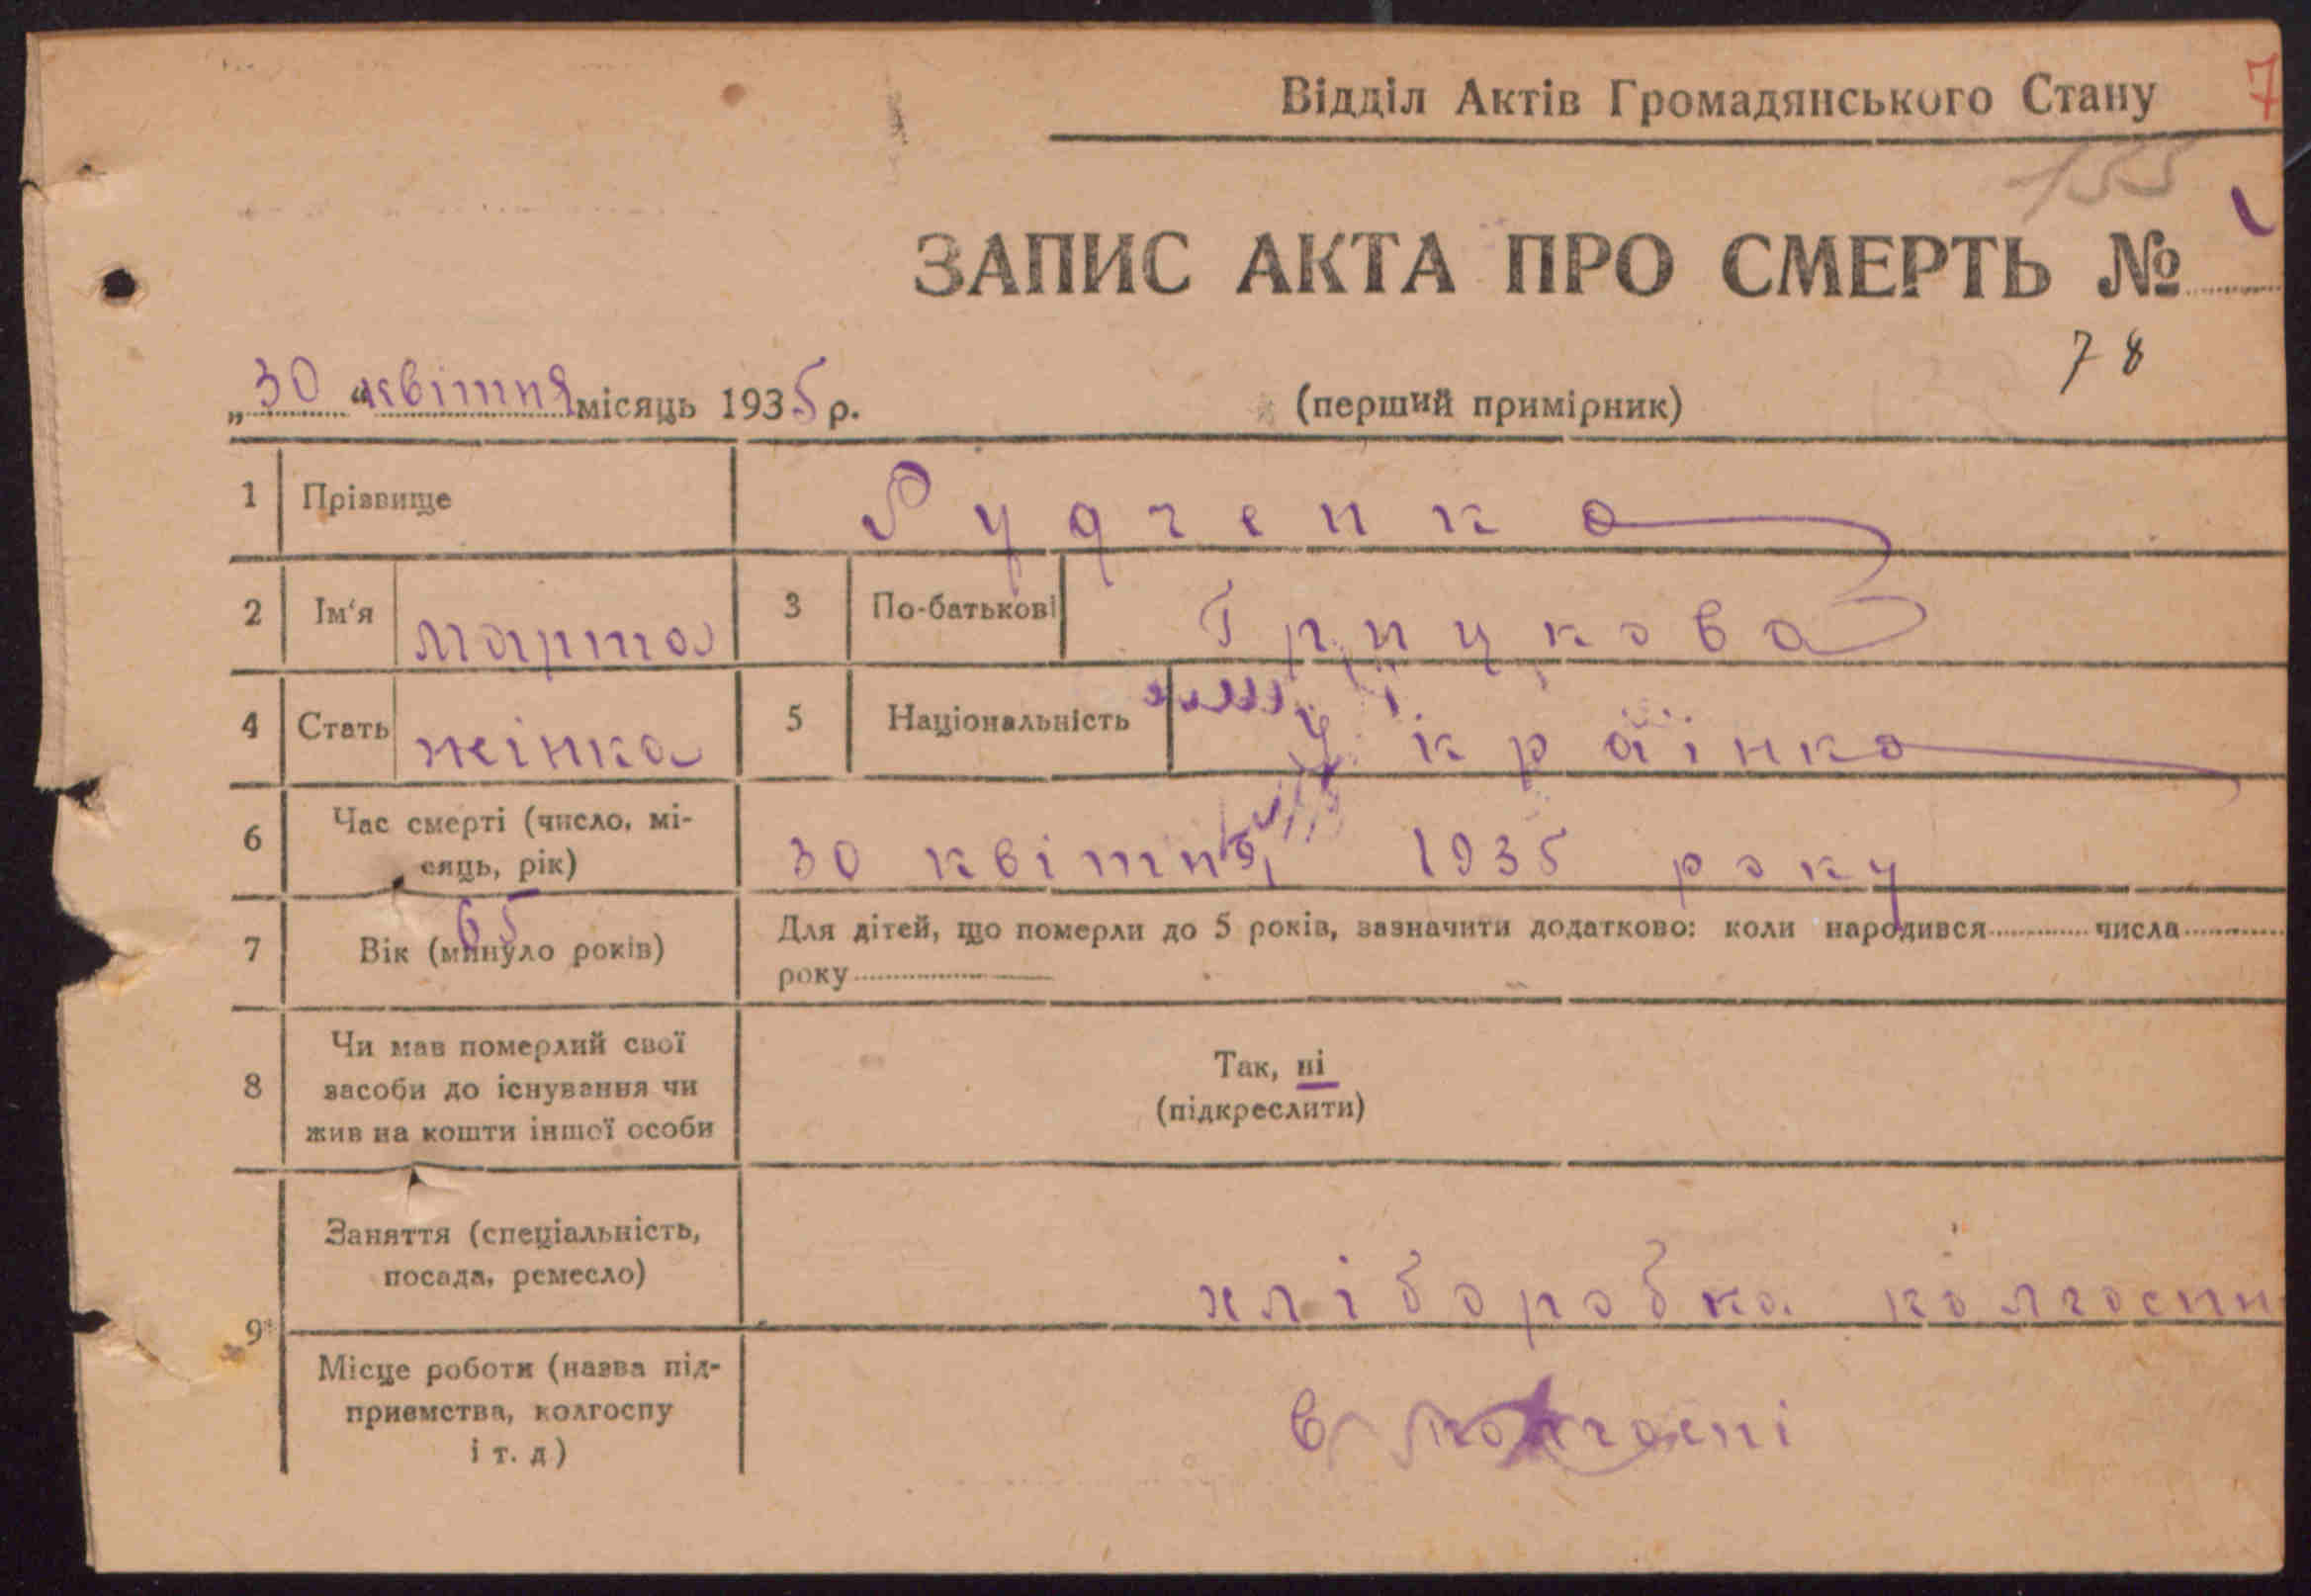 Відділ Актів Громадянського Стану 7
155
ЗАПИС АКТА ПРО СМЕРТЬ №
78
„30“ квітня місяць 1935 р. (перший примірник)
1 Прізвище Рудченко
2 Ім'я марта 3 По-батькові Грицкова
4 Стать жінка 5 Національність Українка
6 Час смерті (число, мі-
сяць, рік) 30 квітня 1935 року
65
7 Вік (минуло років) Для дітей, що померли до 5 років, зазначити додатково: коли народився числа
року
8 Чи мав померлий свої
засоби до існування чи
жив на кошти іншої особи
Так, ні
(підкреслити)
9 Заняття (спеціальність,
посада, ремесло) хліборобка колгоспн
Місце роботи (назва під-
приємства, колгоспу
і т. д) в колгоспі